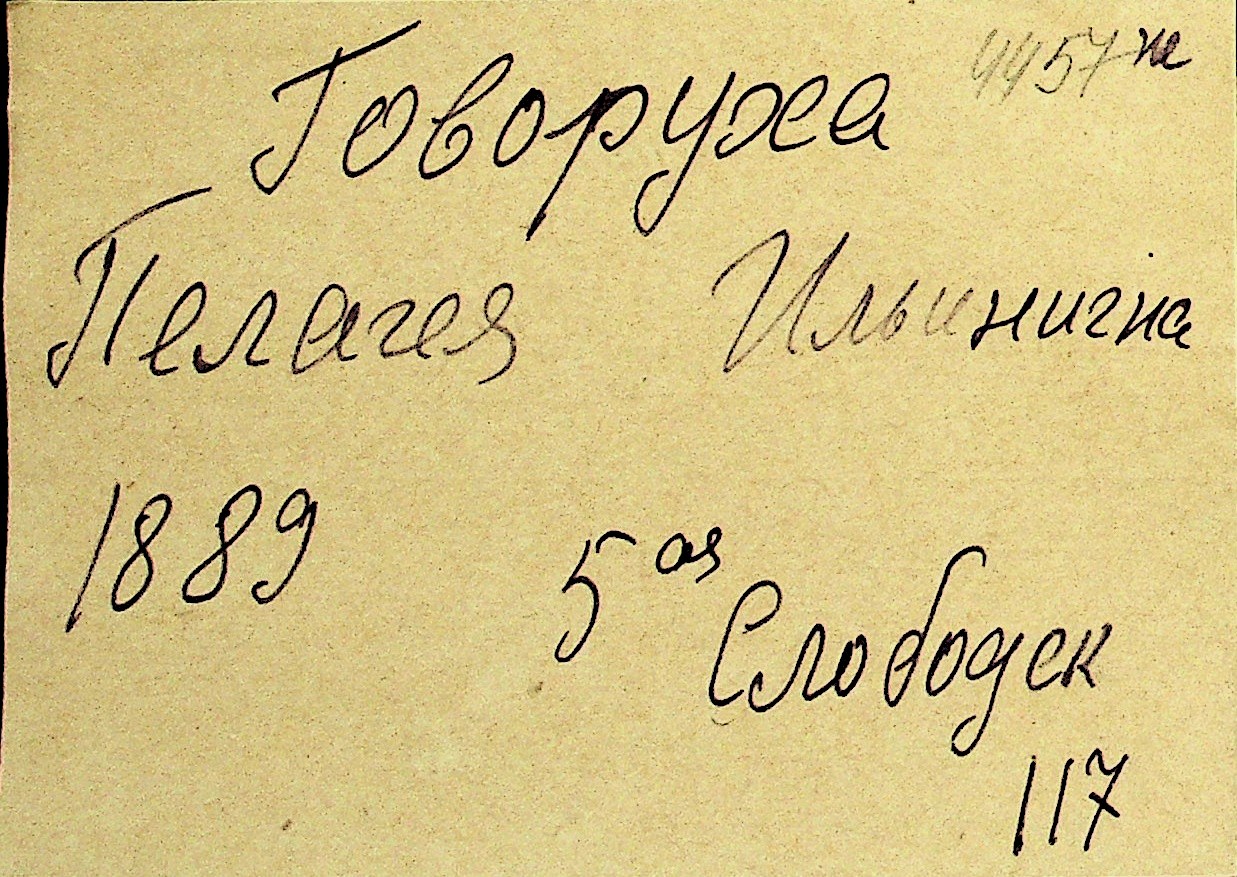 4457 н
Говоруха
Пелагея Ильинигна
1889
5 ая Слободск
117